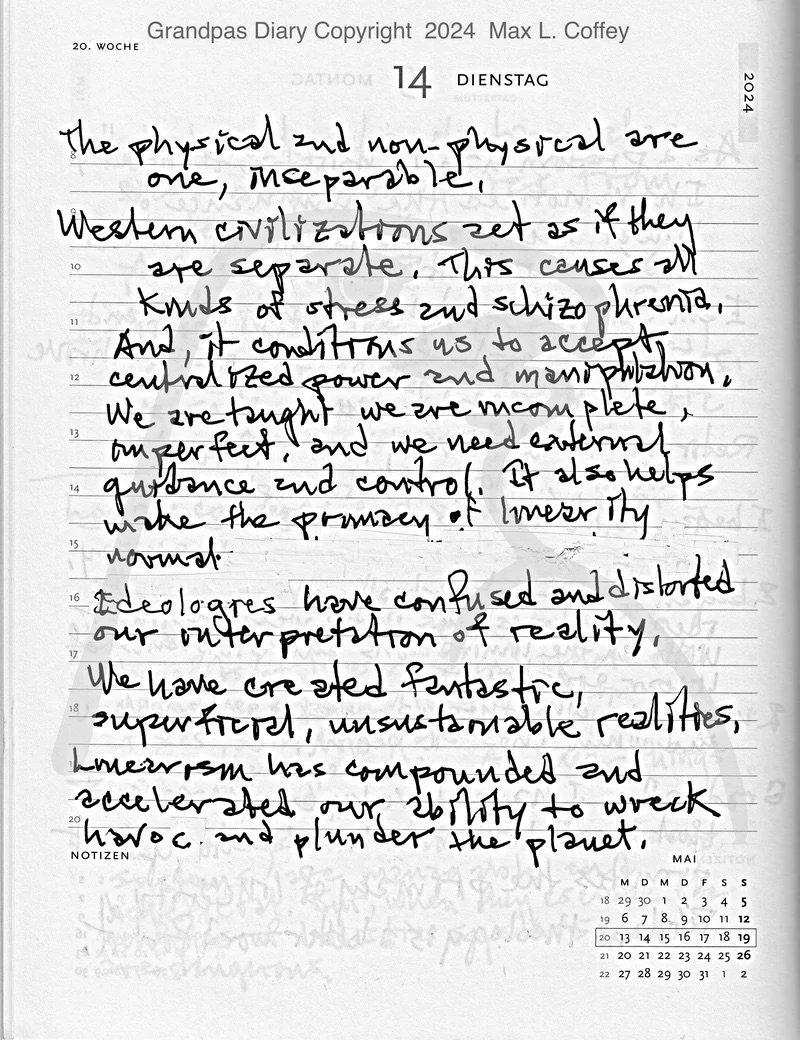 Grandpas Diary Copyright 2024 Max L. Coffey
20. WOCHE
14 DIENSTAG
2024
The physical and non-physical are
8
one, inseparable.
9
Western civilizations act as if they
10
are separate. This causes all
kinds of stress and schizophrenia.
11
And, it conditions us to accept
12
centralized power and maniplulation.
We are taught we are incomplete,
13
imperfect, and we need external
14
guidance and control. It also helps
make the primacy of linearity
15
normal.
16
Ideologies have confused and distorted
our interpretation of reality.
17
We have created fantastic,
18
superficial, unsustainable realities.
19
Linearism has compounded and
accelerated our ability to wreck
20
havoc and plunder the planet.
NOTIZEN
MAI
M D M D F S S
18 29 30 1 2 3 4 5
19 6 7 8 9 10 11 12
20 13 14 15 16 17 18 19
21 20 21 22 23 24 25 26
22 27 28 29 30 31 1 2